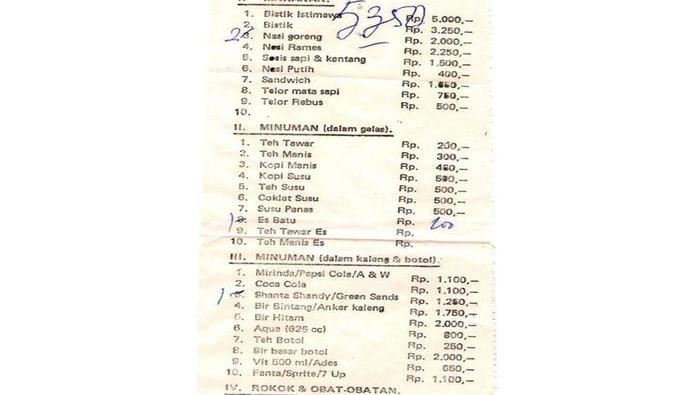 I. MAKANAN.
1. Bistik Istimewa Rp. 5.000,—
5350
2. Bistik Rp. 3.250,—
2 3. Nasi goreng Rp. 2.000,—
4. Nasi Rames Rp. 2.250,—
5. Sosis sapi & kentang Rp. 1.500,—
6. Nasi Putih Rp. 400,—
7. Sandwich Rp.
8. Telor mata sapi Rp. 750,—
9. Telor Rebus Rp. 500,—
10.
II. MINUMAN (dalam gelas).
1. Teh Tawar Rp. 200,—
2. Teh Manis Rp. 300,—
3. Kopi Manis Rp. 450,—
4. Kopi Susu Rp. 500,—
5. Teh Susu Rp. 500,—
6. Coklat Susu Rp. 500,—
7. Susu Panas Rp. 500,—
1 8. Es Batu Rp. 100
9. Teh Tawar Es Rp.
10. Teh Manis Es Rp.
III. MINUMAN (dalam kaleng & botol).
1. Mirinda/Pepsi Cola/A & W Rp. 1.100,—
2. Coca Cola Rp. 1.100,—
1 3. Shanta Shandy/Green Sands Rp. 1.250,—
4. Bir Bintang/Anker kaleng Rp. 1.750,—
5. Bir Hitam Rp. 2.000,—
6. Aqua (625 cc) Rp. 800,—
7. Teh Botol Rp. 250,—
8. Bir besar botol Rp. 2.000,—
9. Vit 500 ml/Ades Rp. 650,—
10. Fanta/Sprite/7 Up Rp. 1.100,—
IV. ROKOK & OBAT-OBATAN.